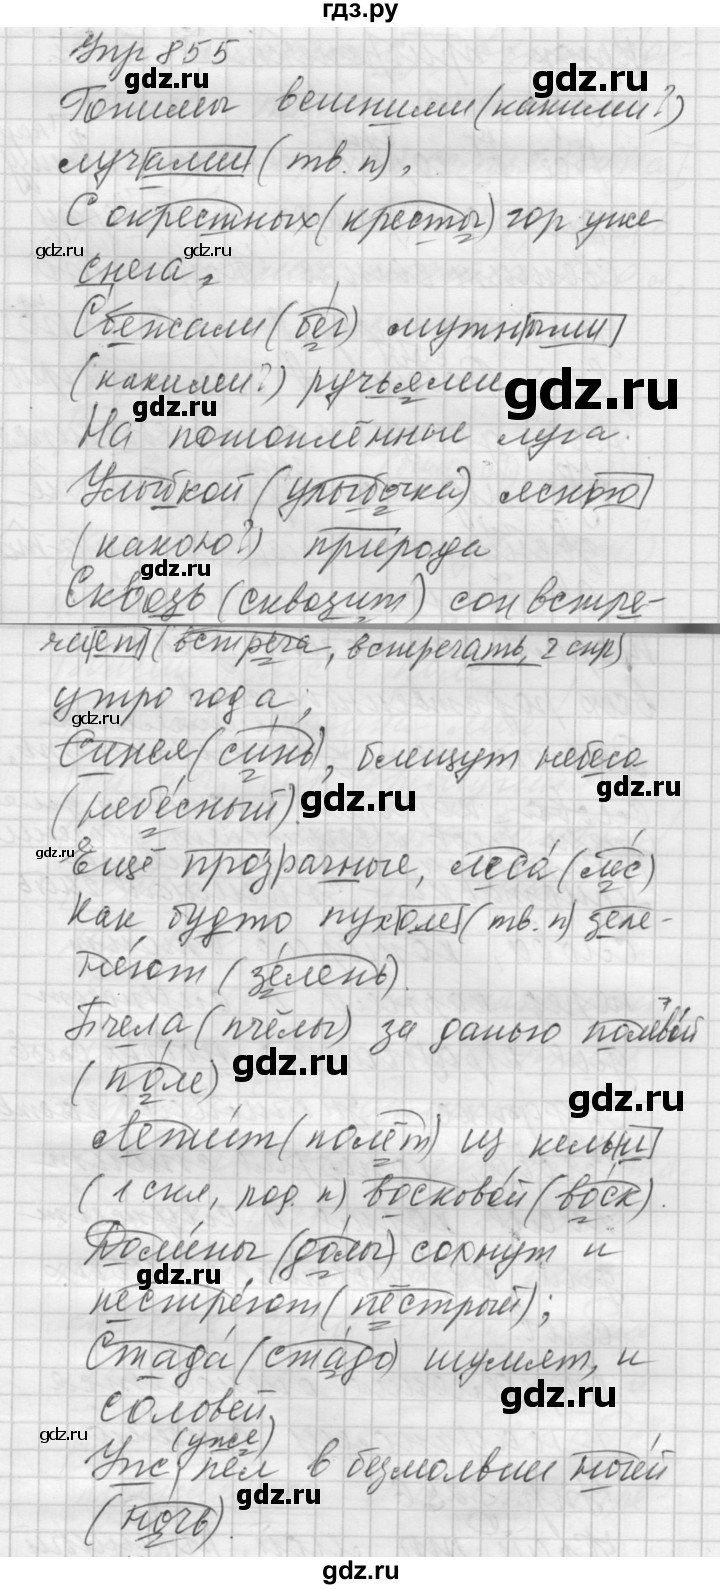 гдз.ру
Упр 855
gdz.ru gdz.ru
Гонимы вешними (какими?)
лучами (тв. п),
С окрестных (кресты) гор уже
gdz.ru gdz.ru
снега,
Сбежали (бег) мутными
(какими?) ручьями
gdz.ru gdz.ru
На потоплённые луга.
Улыбкой (улыбочка) ясною
(какою?) природа
gdz.ru
Сквозь (сквозит) сон встре-
чает (встреча, встречать, 2 спр)
утро года;
gdz.ru
Синея (синь), блещут небеса
gdz.ru
(небесный).
gdz.ru
gdz.ru
Ещё прозрачные, леса (лес)
Как будто пухом (тв. п) зеле-
неют (зелень).
Пчела (пчёлы) за данью полевой
gdz.ru
(поле)
gdz.ru
Летит (полёт) из кельи
(1 скл, род. п) восковой (воск).
Долины (долы) сохнут и
gdz.ru
пестреют (пёстрый);
Стада (стадо) шумят, и
gdz.ru
соловей
gdz.ru
(уже)
Уж пел в безмолвии ночей
gdz.ru
(ночь).
gdz.ru